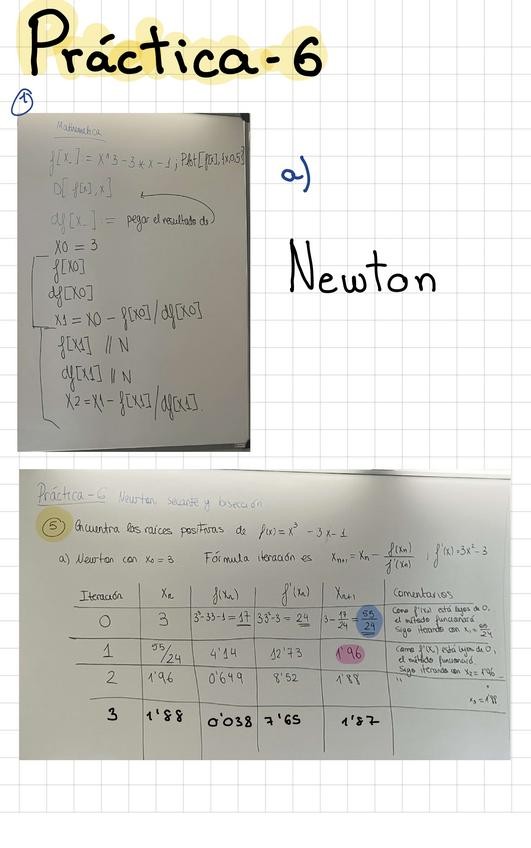 Práctica-6
1
Mathematica
f[x_] = x^3-3*x-1; Plot[f[x],{x,0,5}]
D[f[x],x]
df[x_] := pegar el resultado de
x0 = 3
f[x0]
df[x0]
x1 = x0 - f[x0]/df[x0]
f[x1] // N
df[x1] // N
x2 = x1 - f[x1]/df[x1].
a)
Newton
Práctica-6 Newton, secante y bisección
5 Encuentra las raíces positivas de f(x) = x³ - 3x - 1
a) Newton con x₀ = 3 Fórmula iteración es xₙ₊₁ = xₙ - f(xₙ)/f'(xₙ) ; f'(x) = 3x² - 3
Iteración xₙ f(xₙ) f'(xₙ) xₙ₊₁ comentarios
0 3 3³-3·3-1 = 17 3·3²-3 = 24 3 - 17/24 = 55/24 Como f'(x₀) está lejos de 0, el método funcionará Sigo iterando con x₁ = 55/24
1 55/24 4'14 12'73 1'96 Como f'(x₁) está lejos de 0, el método funcionará Sigo iterando con x₂ = 1'96
2 1'96 0'649 8'52 1'88 " x₃ = 1'88
3 1'88 0'038 7'65 1'87